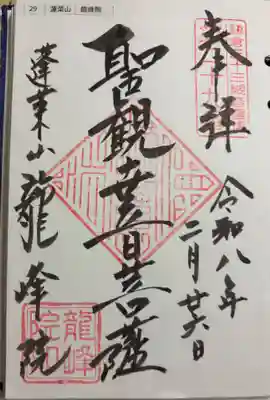 29 蓬莱山 龍峰院
奉拝
令和八年
二月廿六日
聖観世音菩薩
蓬莱山 龍峰院
龍峰
院印